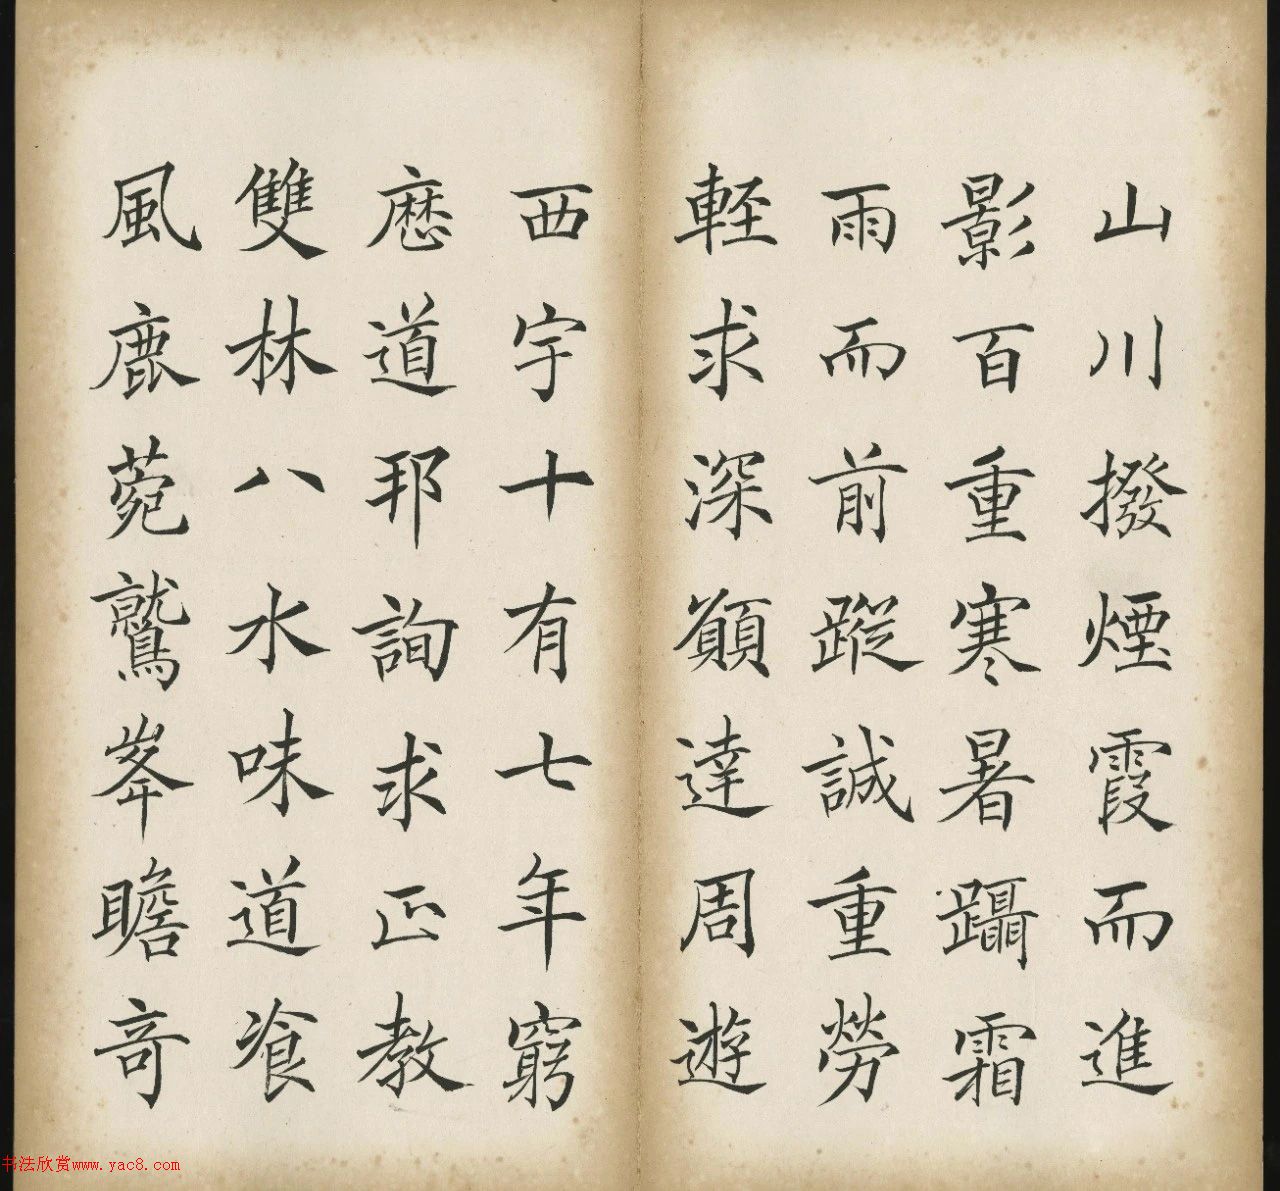 山川撥煙霞而進
影百重寒暑躡霜
雨而前蹤誠重勞
軽求深願達周遊
西宇十有七年窮
歴道邦詢求正教
雙林八水味道飡
風鹿菀鷲峯瞻奇
书法欣赏www.yac8.com